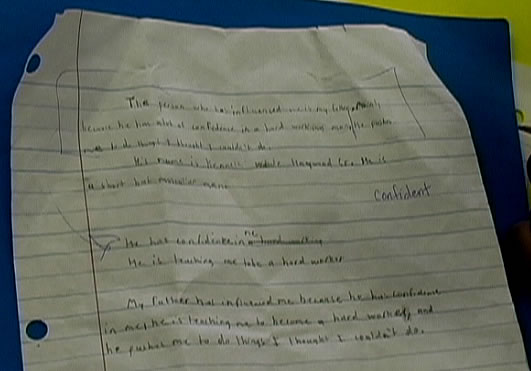 The person who has influenced me is my
because he has alot of confidence in a hard working man, he pushes
me to do things I thought I couldn't do.
His name is Haywood Lee. He is
a short but muscular man.
Confident
He has confidence in me hard working
He is teaching me to be a hard worker
My father has influenced me because he has confidence
in me, he is teaching me to become a hard worker, and
he pushes me to do things I thought I couldn't do.